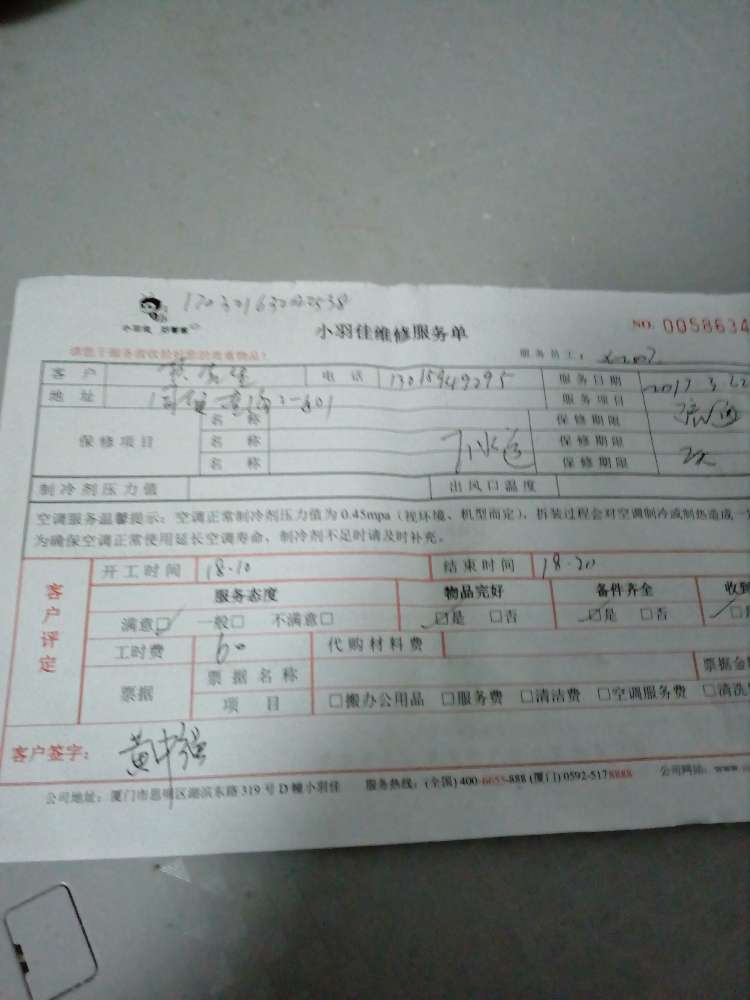 17030163002538
小羽佳 好管家
小羽佳维修服务单
NO. 0058634
请您于服务前收捡好您的贵重物品!
服务员工:
客户 电话 13015949295 服务日期 2017.3.22
地址 2-601 服务项目
保修项目 名称 保修期限
名称 下水道 保修期限
名称 保修期限
制冷剂压力值 出风口温度
空调服务温馨提示:空调正常制冷剂压力值为0.45mpa(视环境、机型而定),拆装过程会对空调制冷或制热造成一
为确保空调正常使用延长空调寿命,制冷剂不足时请及时补充。
客户评定
开工时间 18.10 结束时间 18.20
服务态度 物品完好 备件齐全 收到
满意☑ 一般□ 不满意□ ☑是 □否 ☑是 □否
工时费 60 代购材料费
票据 票据名称 票据金
项目 □搬办公用品 □服务费 □清洁费 □空调服务费 □清洗
客户签字: 黄中强
公司地址:厦门市思明区湖滨东路319号D幢小羽佳 服务热线:(全国)400-6655-888 (厦门)0592-5178888 公司网站:www.